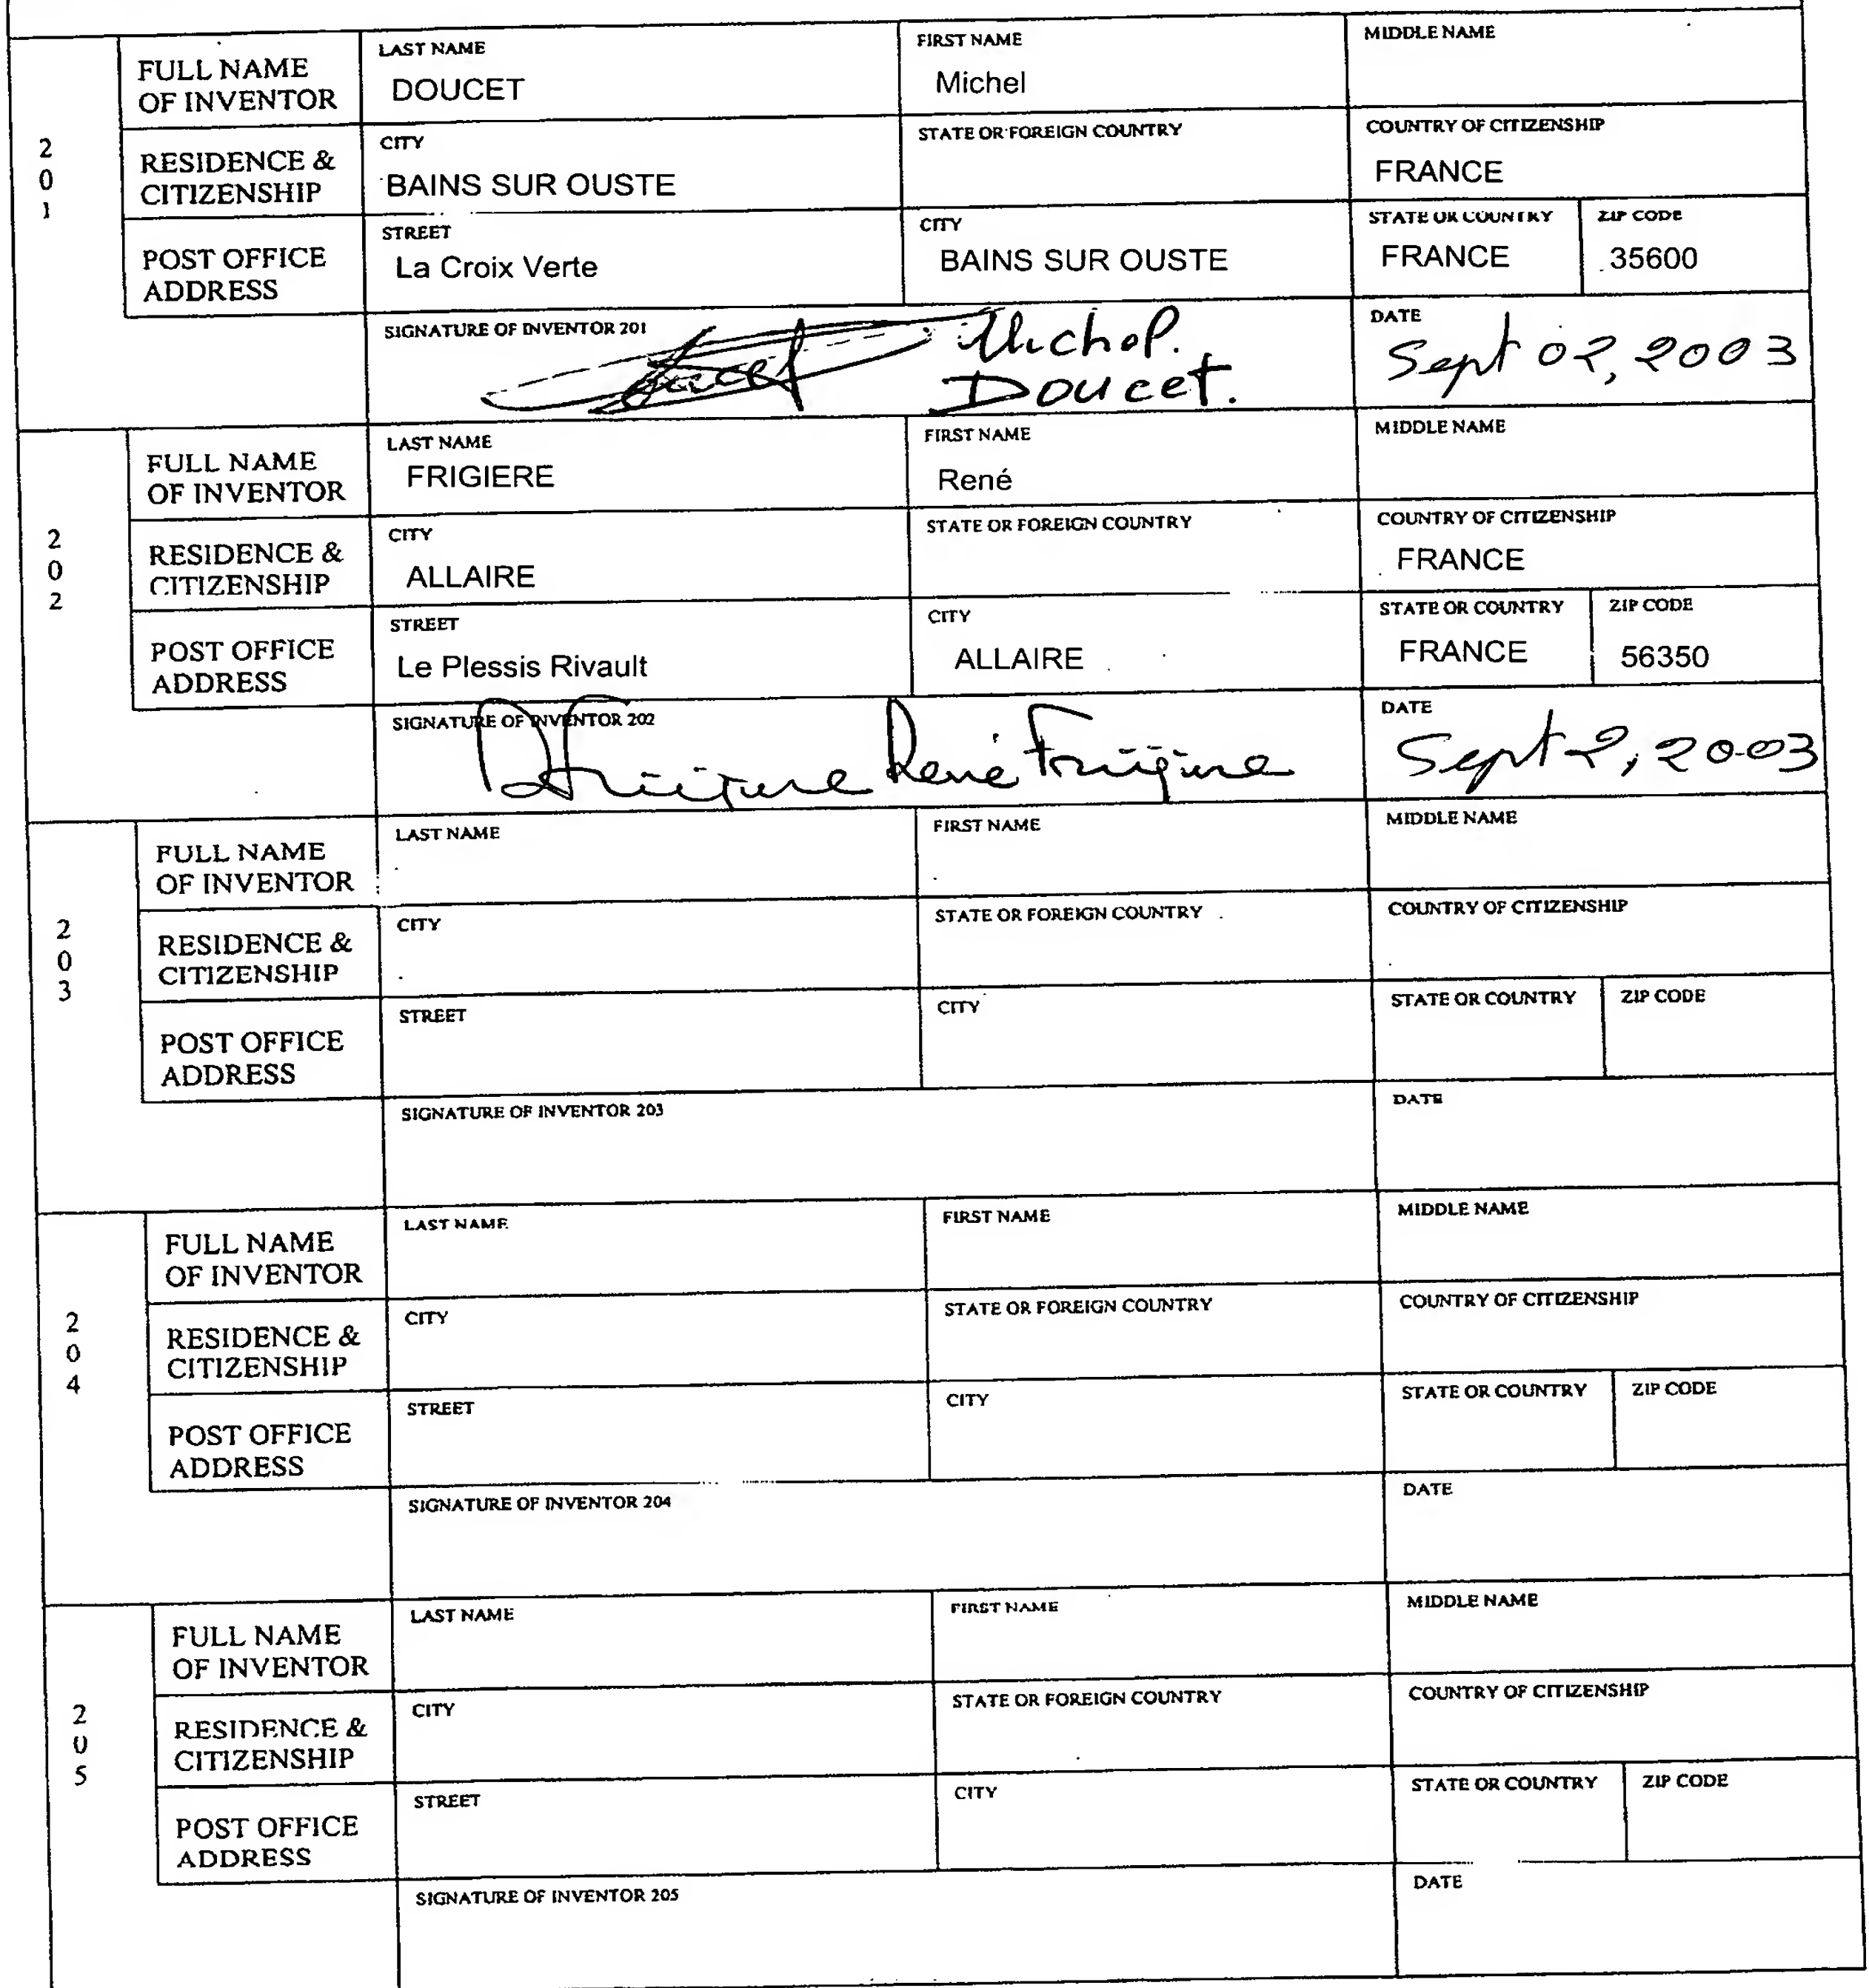 201
FULL NAME OF INVENTOR
LAST NAME
DOUCET
FIRST NAME
Michel
MIDDLE NAME
RESIDENCE & CITIZENSHIP
CITY
BAINS SUR OUSTE
STATE OR FOREIGN COUNTRY
COUNTRY OF CITIZENSHIP
FRANCE
POST OFFICE ADDRESS
STREET
La Croix Verte
CITY
BAINS SUR OUSTE
STATE OR COUNTRY
FRANCE
ZIP CODE
35600
SIGNATURE OF INVENTOR 201
Michel.
Doucet.
DATE
Sept 02, 2003
202
FULL NAME OF INVENTOR
LAST NAME
FRIGIERE
FIRST NAME
René
MIDDLE NAME
RESIDENCE & CITIZENSHIP
CITY
ALLAIRE
STATE OR FOREIGN COUNTRY
COUNTRY OF CITIZENSHIP
FRANCE
POST OFFICE ADDRESS
STREET
Le Plessis Rivault
CITY
ALLAIRE
STATE OR COUNTRY
FRANCE
ZIP CODE
56350
SIGNATURE OF INVENTOR 202
René Frigiere
DATE
Sept 2, 2003
203
FULL NAME OF INVENTOR
LAST NAME
FIRST NAME
MIDDLE NAME
RESIDENCE & CITIZENSHIP
CITY
STATE OR FOREIGN COUNTRY
COUNTRY OF CITIZENSHIP
POST OFFICE ADDRESS
STREET
CITY
STATE OR COUNTRY
ZIP CODE
SIGNATURE OF INVENTOR 203
DATE
204
FULL NAME OF INVENTOR
LAST NAME
FIRST NAME
MIDDLE NAME
RESIDENCE & CITIZENSHIP
CITY
STATE OR FOREIGN COUNTRY
COUNTRY OF CITIZENSHIP
POST OFFICE ADDRESS
STREET
CITY
STATE OR COUNTRY
ZIP CODE
SIGNATURE OF INVENTOR 204
DATE
205
FULL NAME OF INVENTOR
LAST NAME
FIRST NAME
MIDDLE NAME
RESIDENCE & CITIZENSHIP
CITY
STATE OR FOREIGN COUNTRY
COUNTRY OF CITIZENSHIP
POST OFFICE ADDRESS
STREET
CITY
STATE OR COUNTRY
ZIP CODE
SIGNATURE OF INVENTOR 205
DATE